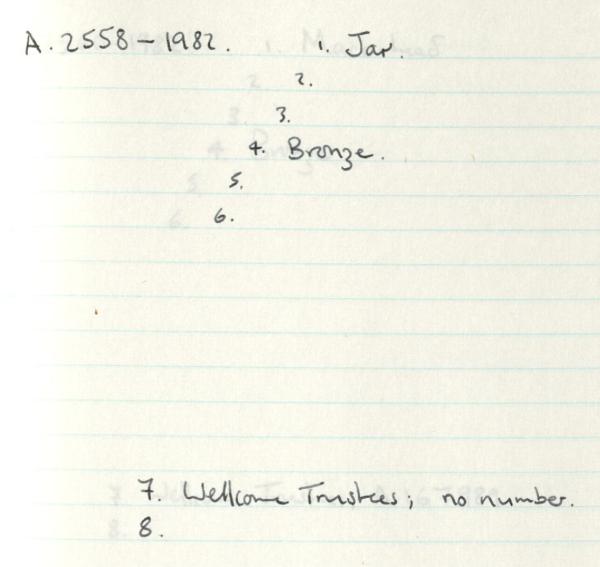 A. 2558-1982. 1. Jar.
2.
3.
4. Bronze.
5.
6.
7. Wellcome Trustees; no number.
8.